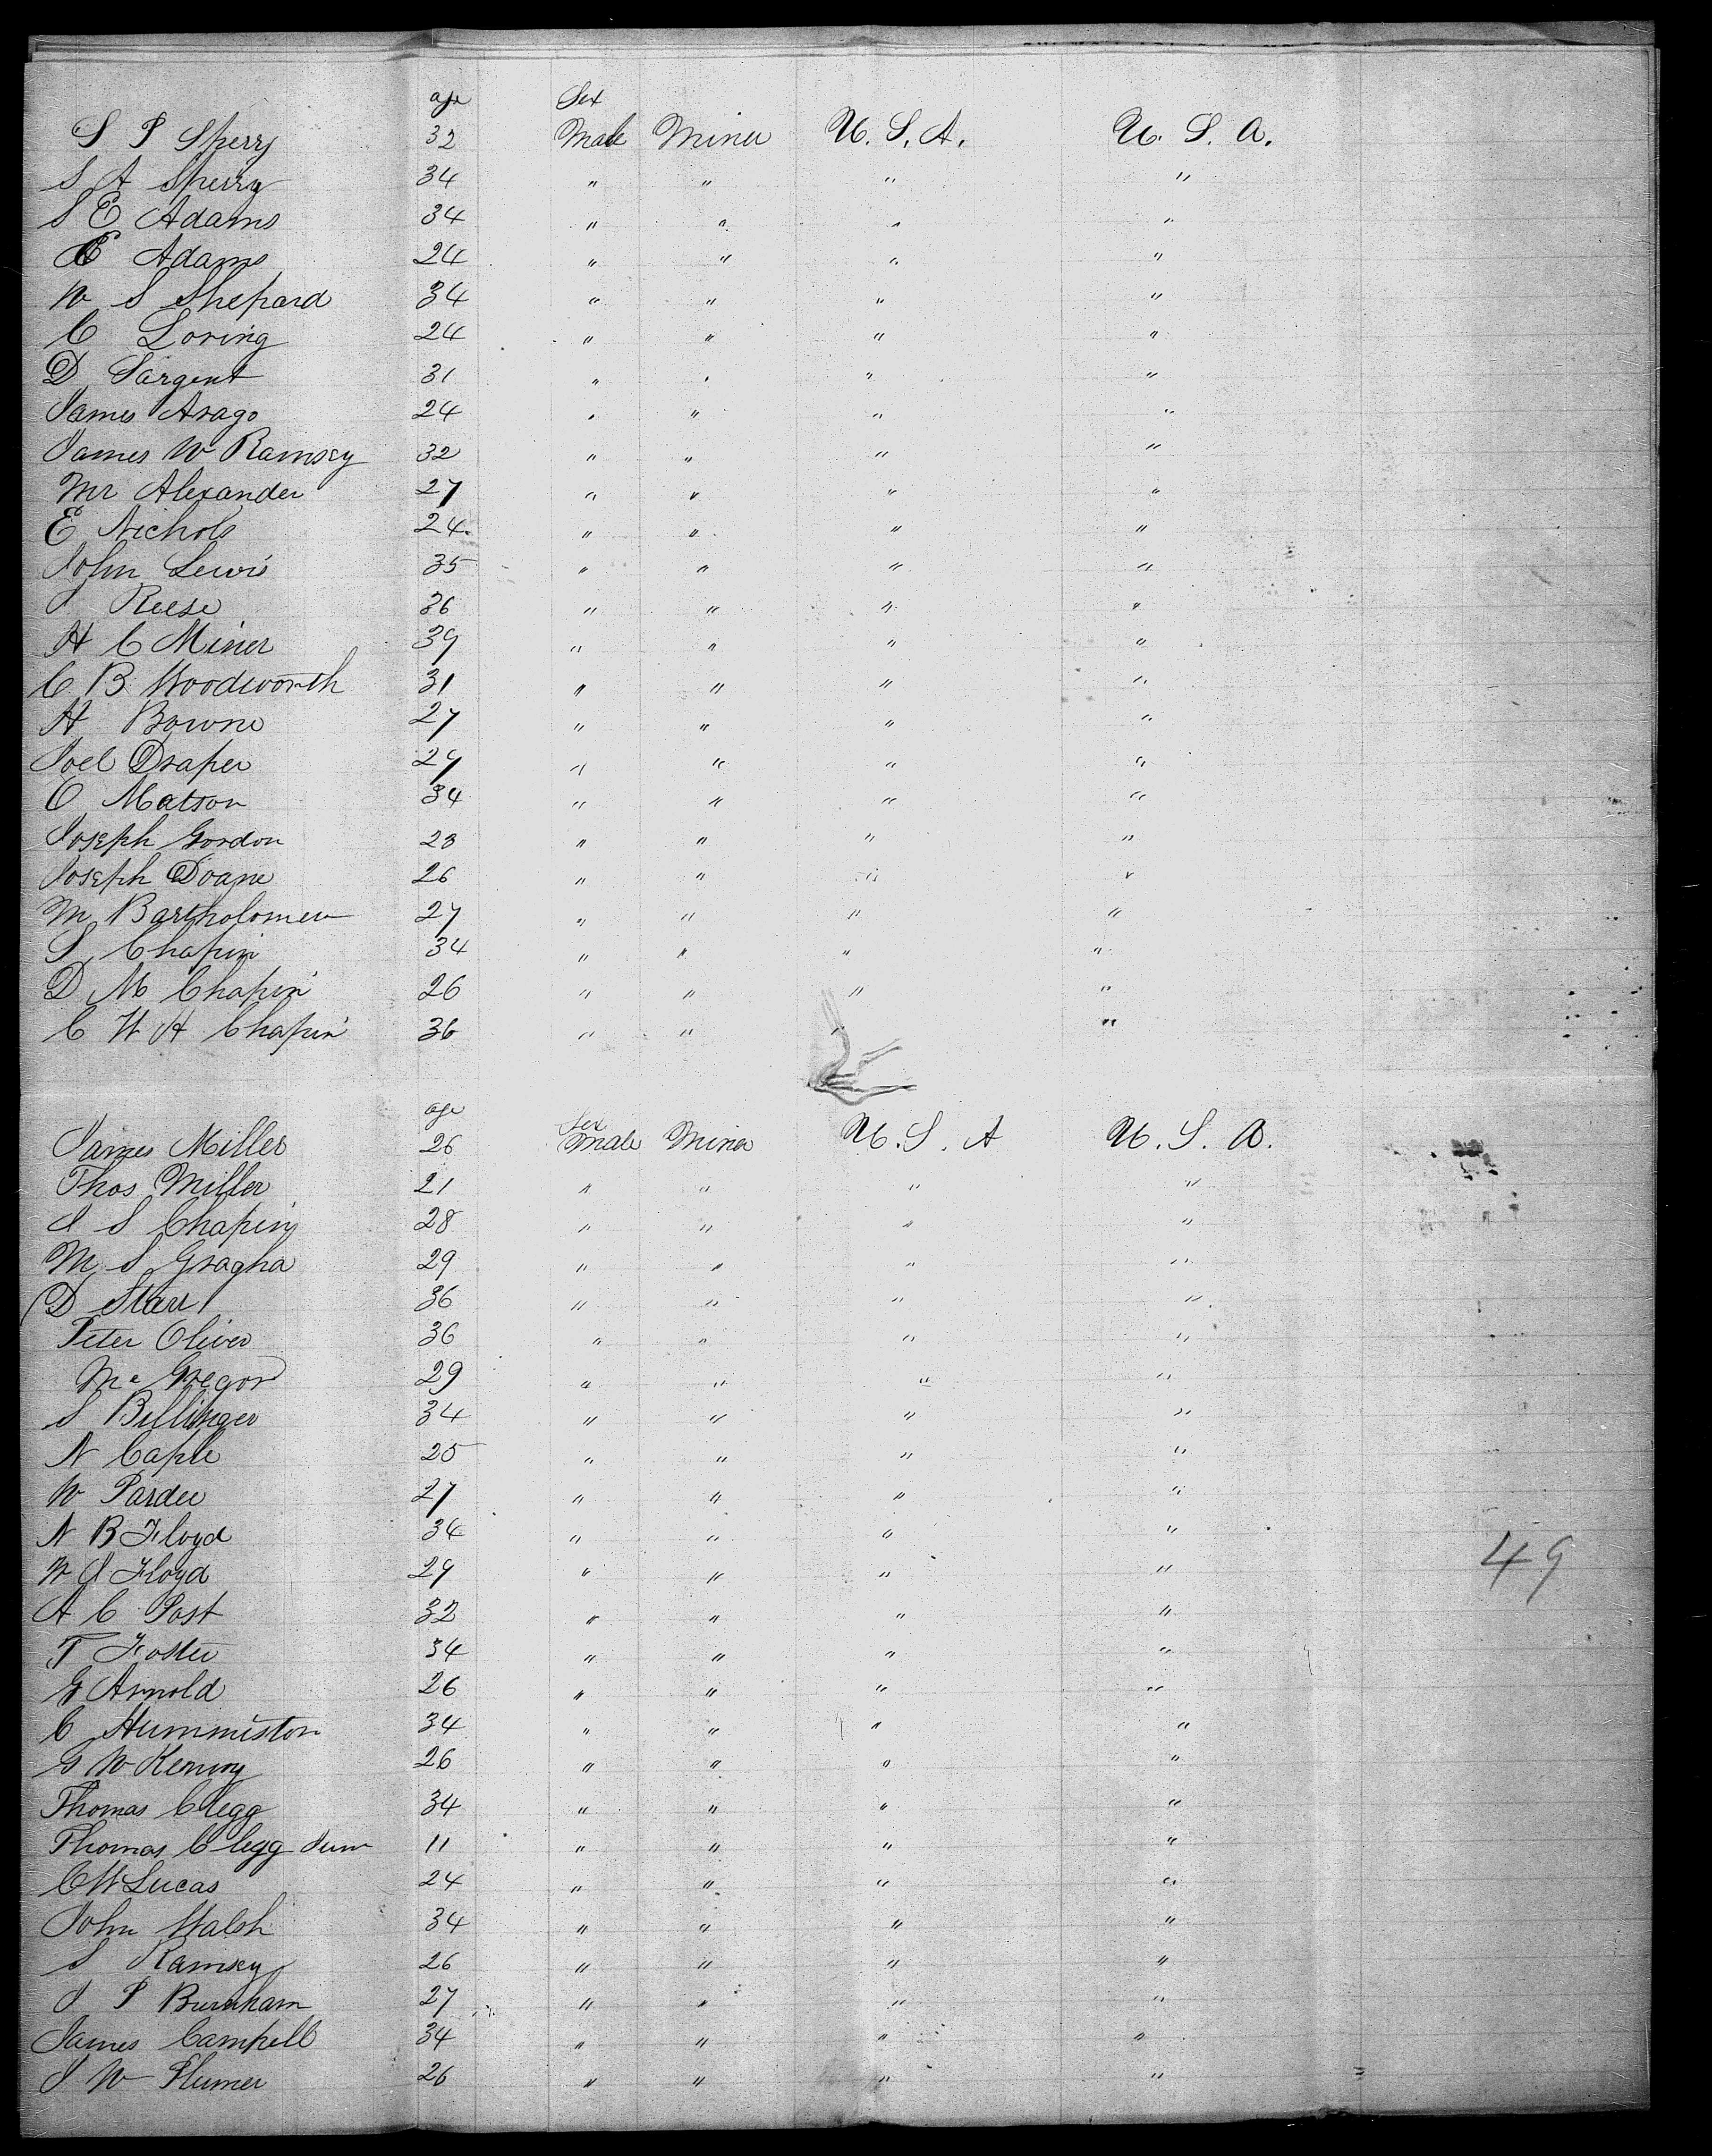 age Sex
S P Sperry 32 Male Miner U. S. A. U. S. A.
S A Sperry 34 " " " "
S E Adams 34 " " " "
E Adams 24 " " " "
W S Shepard 34 " " " "
C Loring 24 " " " "
D Sargent 31 " " " "
James Arago 24 " " " "
James W Ramsey 32 " " " "
Mr Alexander 27 " " " "
E Nichols 24 " " " "
John Lewis 35 " " " "
J Reese 36 " " " "
H C Miner 39 " " " "
C B Woodworth 31 " " " "
H Bowne 27 " " " "
Joel Draper 29 " " " "
O Matson 34 " " " "
Joseph Gordon 23 " " " "
Joseph Doane 26 " " " "
M Bartholomew 27 " " " "
S Chapin 34 " " " "
D M Chapin 26 " " " "
C W H Chapin 36 " " " "
age Sex
James Miller 26 Male Miner U. S. A U. S. A.
Thos Miller 21 " " " "
J S Chapin 28 " " " "
M S Gragha 29 " " " "
D Starr 36 " " " "
Peter Oliver 36 " " " "
Mc Gregor 29 " " " "
S Billinger 34 " " " "
N Caple 25 " " " "
W Pardee 27 " " " "
N B Floyd 34 " " " "
W J Floyd 29 " " " "
49
A C Post 32 " " " "
T Foster 34 " " " "
G Arnold 26 " " " "
C Hummiston 34 " " " "
G W 26 " " " "
Thomas Clegg 34 " " " "
Thomas Clegg Junr 11 " " " "
C W Lucas 24 " " " "
John Walsh 34 " " " "
S Ramsey 26 " " " "
J P Burnham 27 " " " "
James Campell 34 " " " "
J W Plumer 26 " " " "